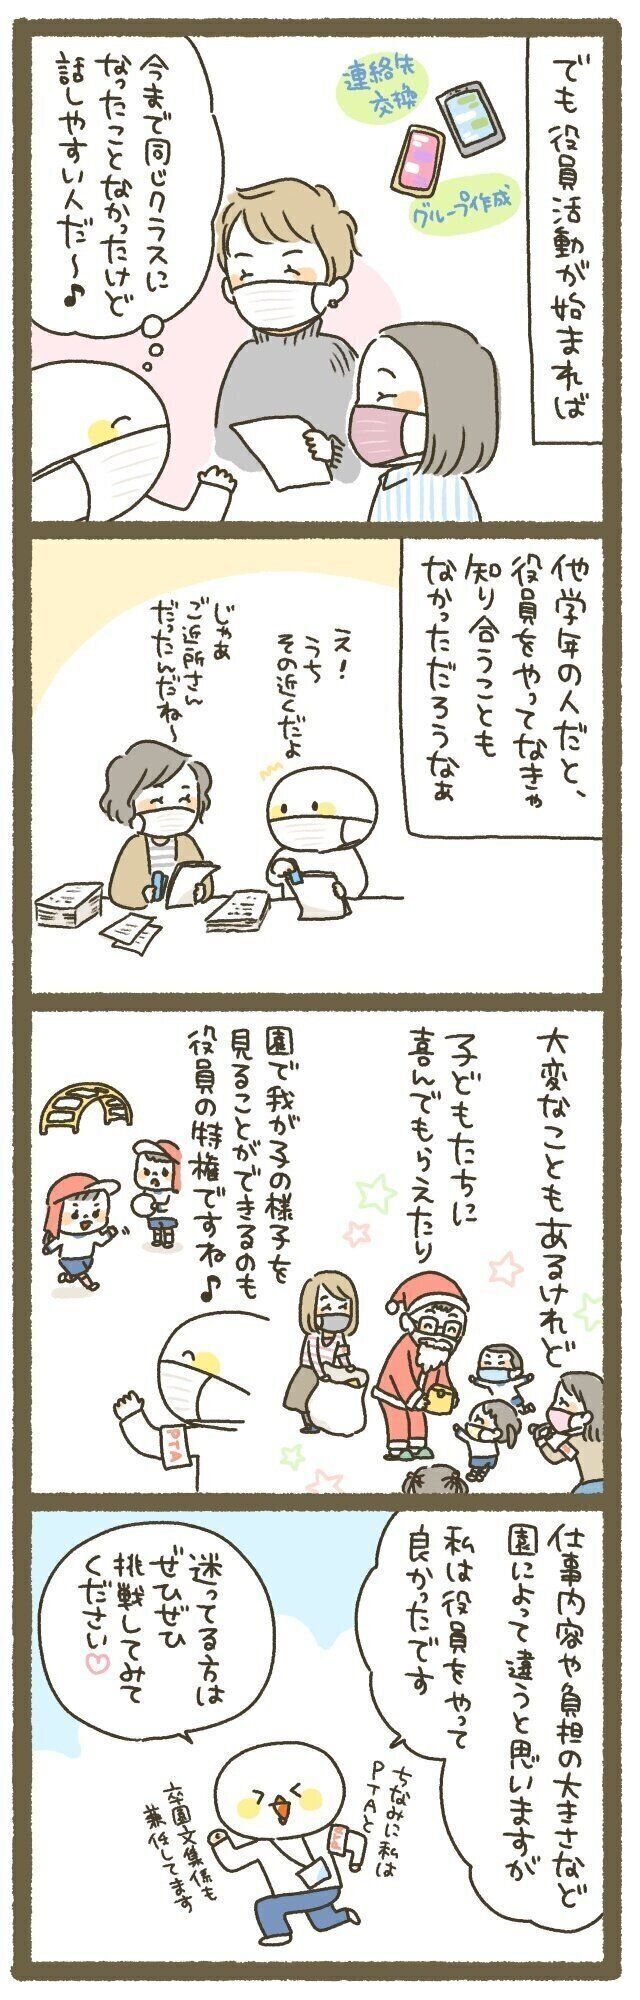 でも役員活動が始まれば
連絡先
交換
グループ作成
今まで同じクラスに
なったことなかったけど
話しやすい人だ〜♪
他学年の人だと、
役員をやってなきゃ
知り合うことも
なかっただろうなぁ
え！
うち
その近くだよ
じゃあ
ご近所さん
だったんだね〜
大変なこともあるけれど
子どもたちに
喜んでもらえたり
園で我が子の様子を
見ることができるのも
役員の特権ですね♪
PTA
仕事内容や負担の大きさなど
園によって違うと思いますが
私は役員をやって
良かったです
迷ってる方は
ぜひぜひ
挑戦してみて
ください♡
ちなみに私は
PTAと
卒園文集係も
兼任してます